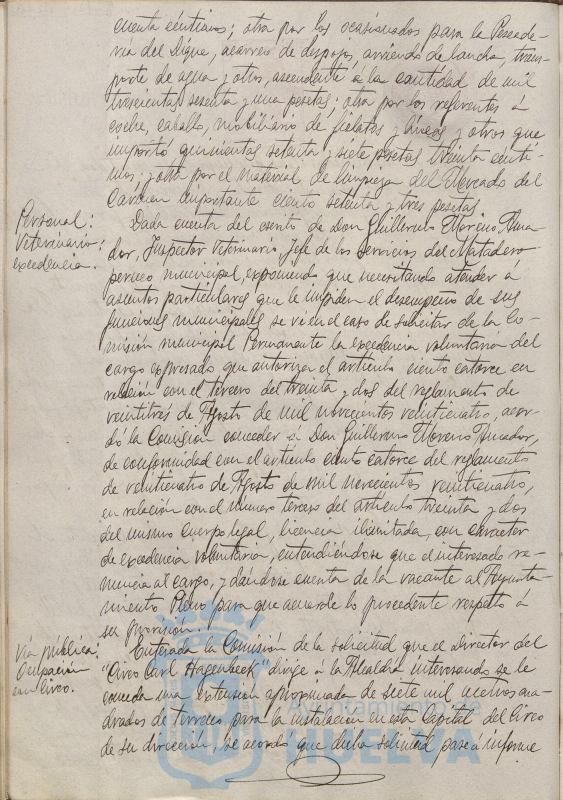 cuenta céntimos; otra por los ocasionados para la Pescade-
ría del Dique, acarreo de despojo, arriendo de lancha, trans-
porte de agua y otros, ascendente a la cantidad de mil
trescientas sesenta y una pesetas; otra por los referentes á
coche, caballo, mobiliario de fielatos y líneas y otros que
importó quinientas setenta y siete pesetas treinta cénti-
mos; y otra por el material de limpieza del Mercado del
Carmen importante ciento setenta y tres pesetas.
Personal:
Veterinario:
excedencia.
Dada cuenta del escrito de Don Guillermo Moreno Ama-
dor, Inspector Veterinario Jefe de los servicios del Matadero
perico municipal, exponiendo que necesitando atender á
asuntos particulares que le impiden el desempeño de sus
funciones municipales se vé en el caso de solicitar de la Co-
misión municipal Permanente la excedencia voluntaria del
cargo expresado que autoriza el artículo ciento catorce en
relación con el tercero del treinta y dos del reglamento de
veintitres de Agosto de mil novecientos veinticuatro, acor-
dó la Comisión conceder á Don Guillermo Moreno Amador,
de conformidad con el artículo ciento catorce del reglamento
de veinticuatro de Agosto de mil novecientos veinticuatro,
en relación con el número tercero del artículo treinta y dos
del mismo cuerpo legal, licencia ilimitada, con caracter
de excedencia voluntaria, entendiéndose que el interesado re-
nuncia al cargo, y dándose cuenta de la vacante al Ayunta-
miento Pleno para que acuerde lo procedente respecto á
su provisión.
Vía pública:
Ocupación
con circo.
Enterada la Comisión de la solicitud que el Director del
"Circo Carl Hagenbeck" dirige á la Alcaldía interesando se le
conceda una extensión aproximada de siete mil metros cua-
drados de terreno para la instalación en esta Capital del Circo
de su dirección, se acordó que dicha solicitud pase á informe
Ayuntamiento de
HUELVA